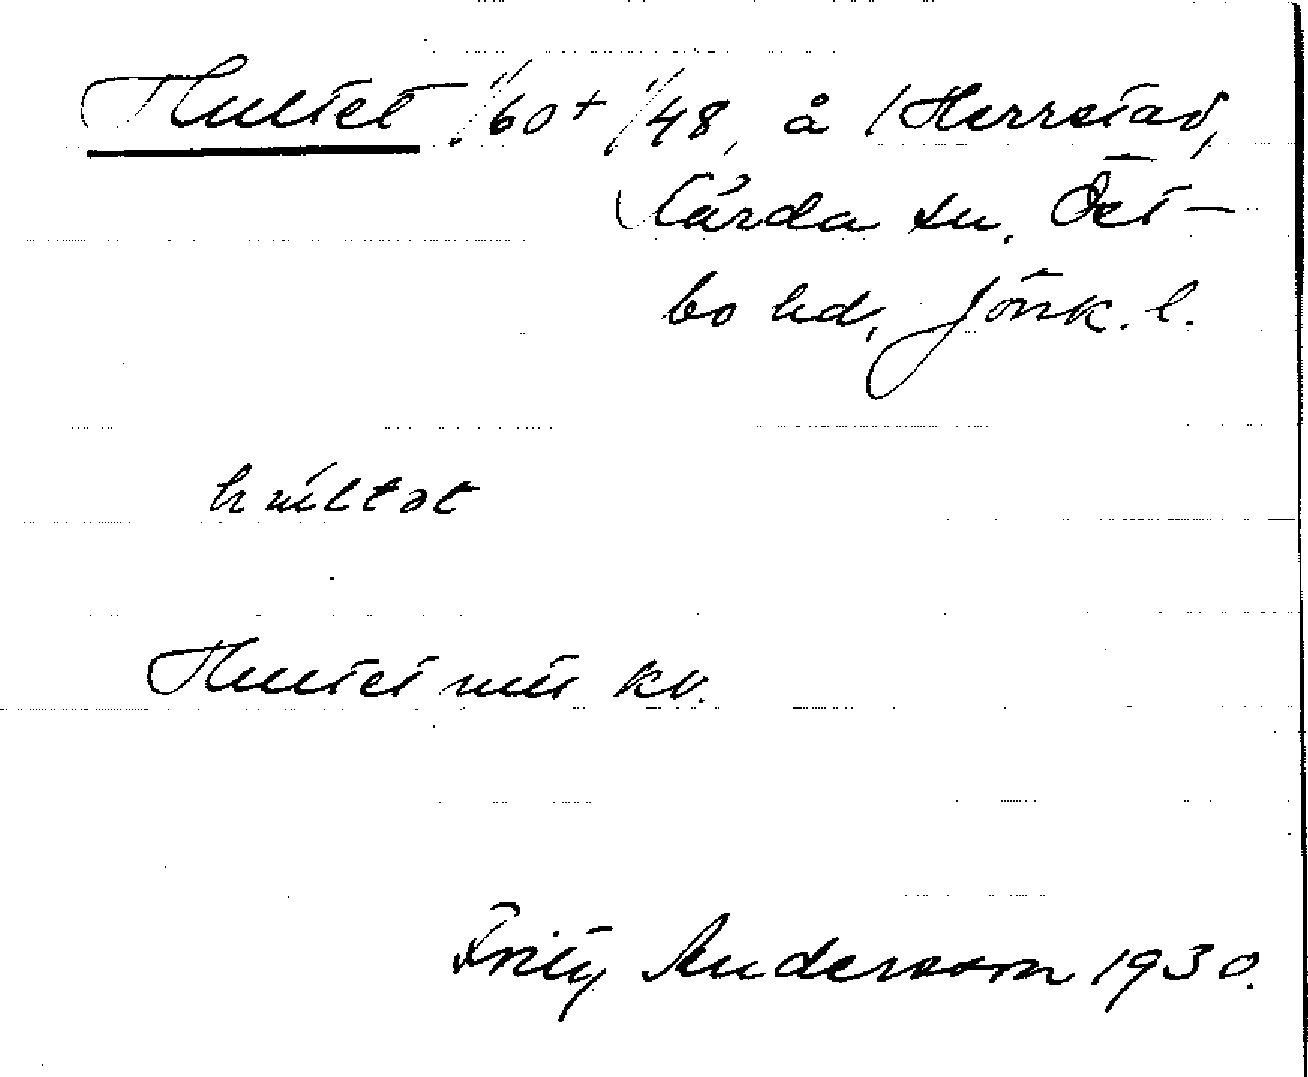 Hultet. 1/60 + 1/48, å Herrstad,
Kärda sn. Öst-
bo hd, Jönk. l.
hultət
Hultet mit kv.
Fritz Andersson 1930.